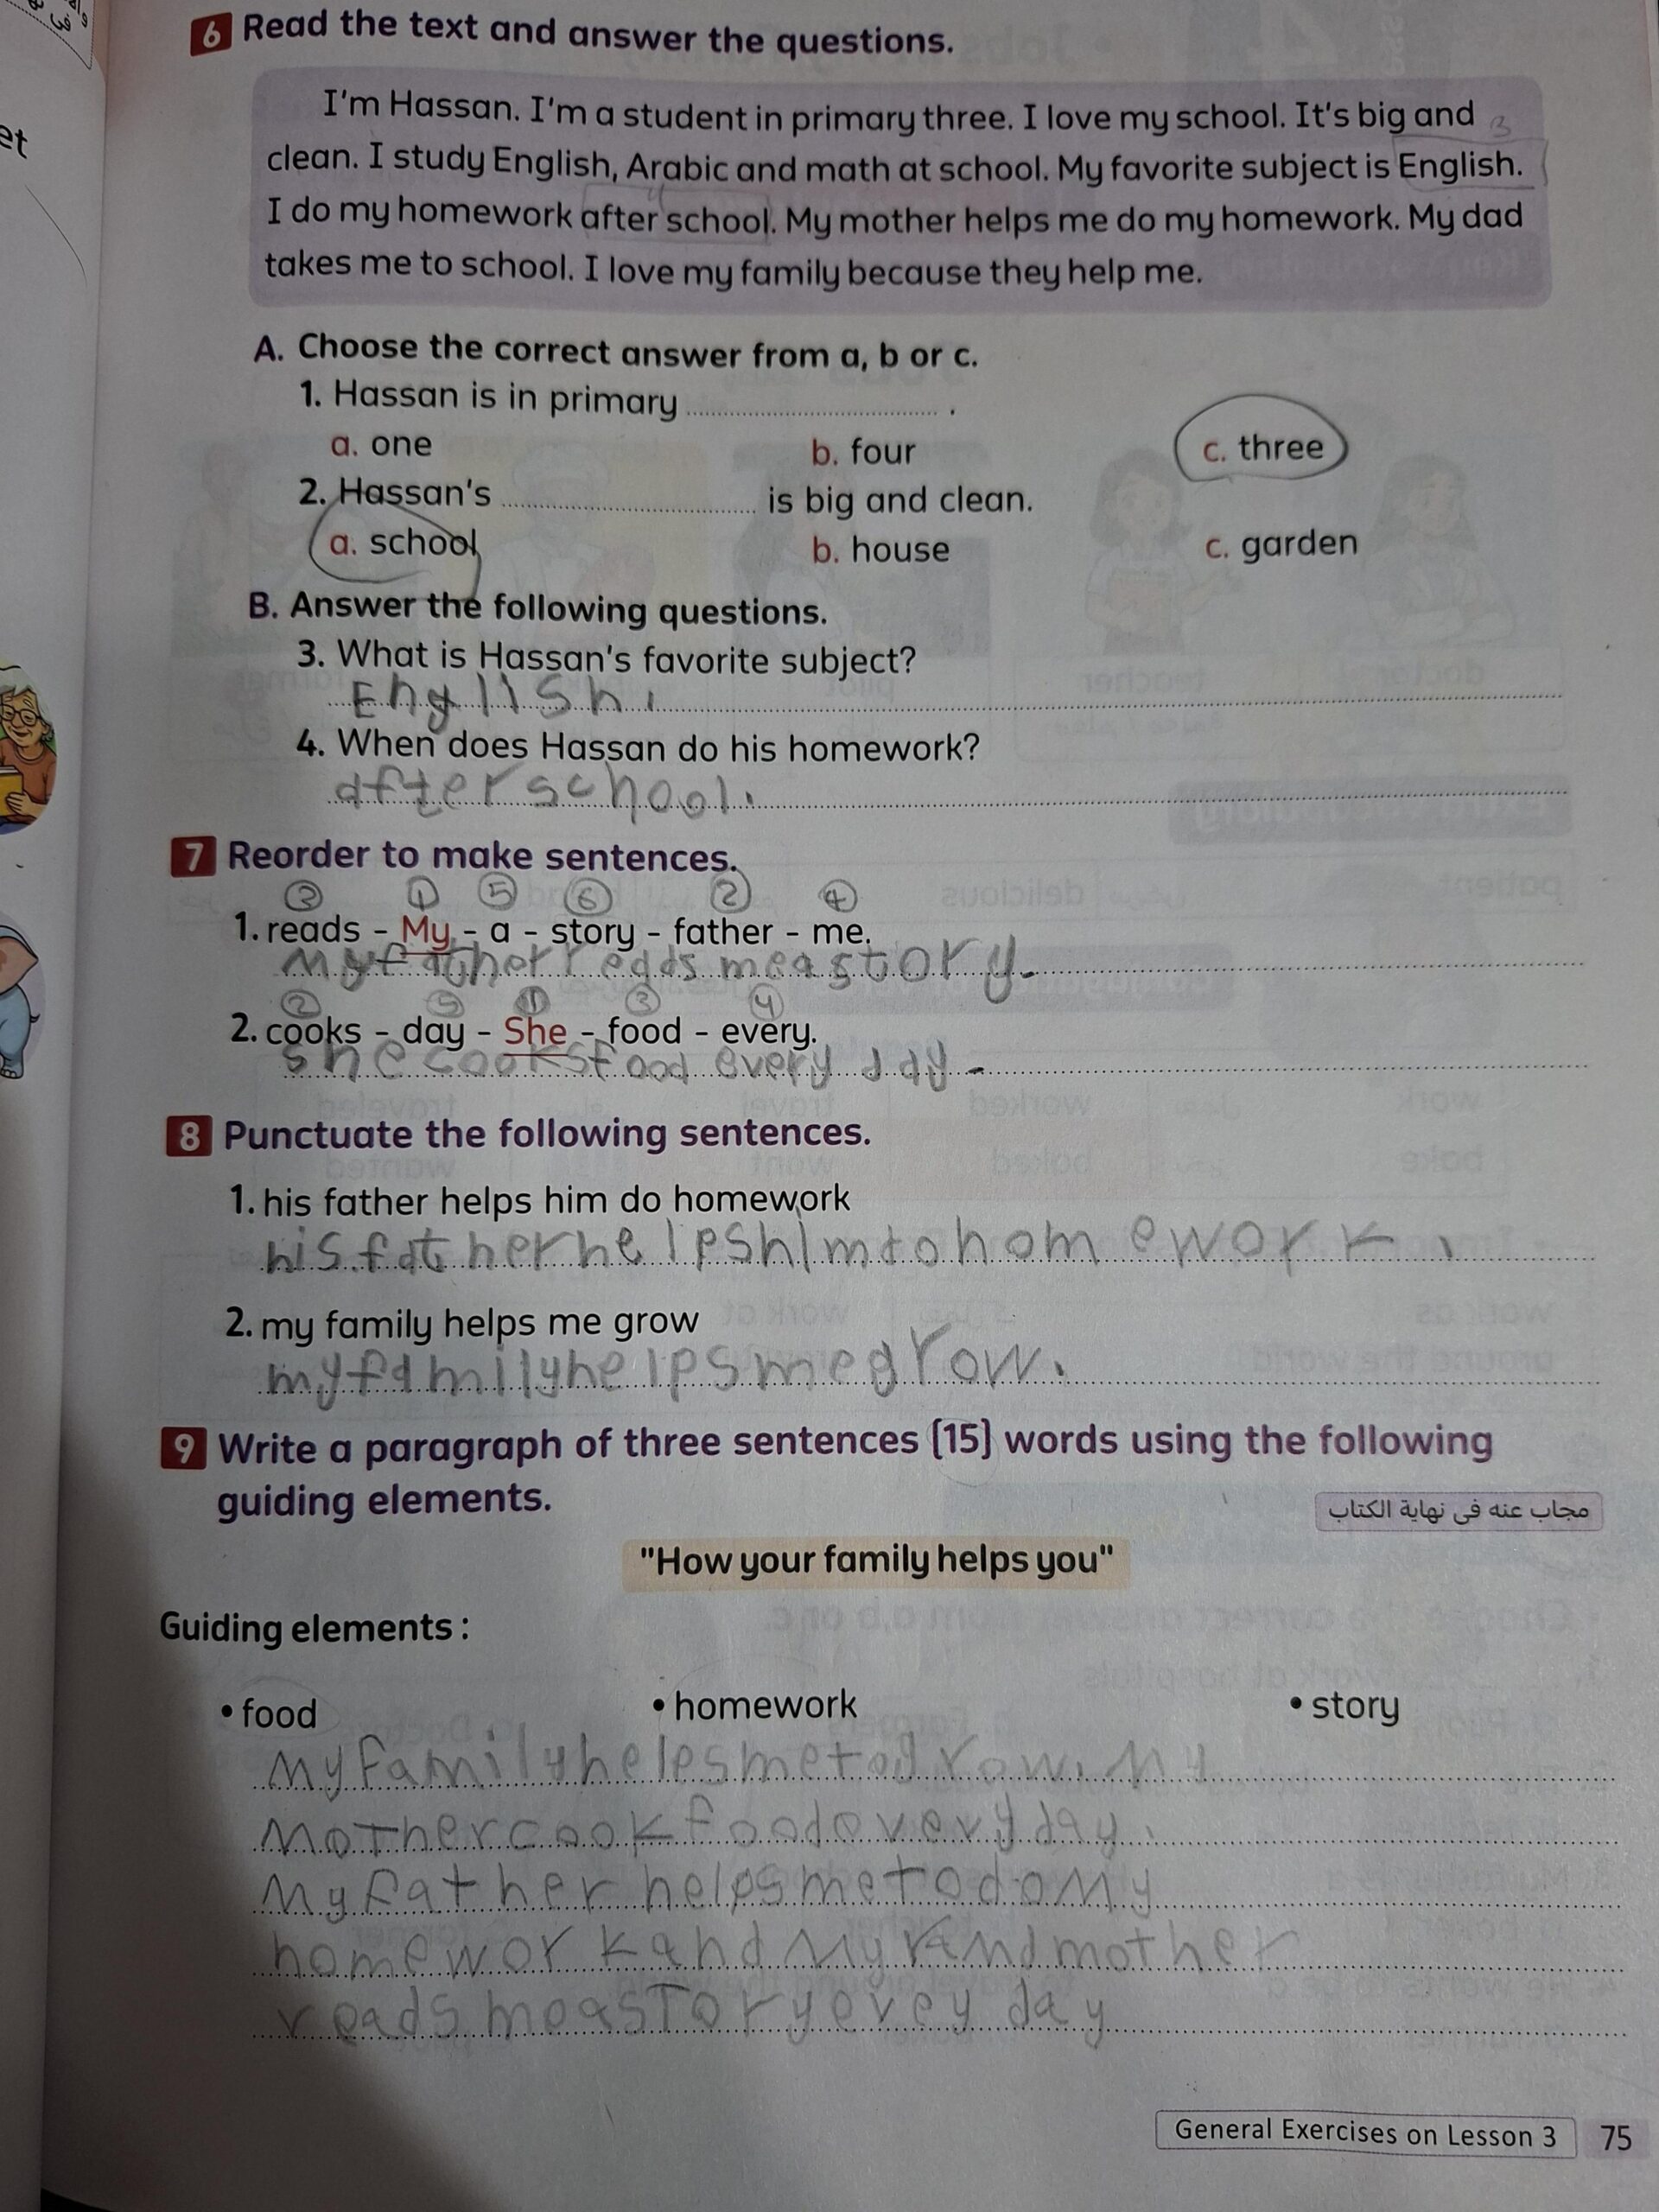 et
6 Read the text and answer the questions.
I'm Hassan. I'm a student in primary three. I love my school. It's big and
3
clean. I study English, Arabic and math at school. My favorite subject is English.
4
I do my homework after school. My mother helps me do my homework. My dad
takes me to school. I love my family because they help me.
A. Choose the correct answer from a, b or c.
1. Hassan is in primary .
a. one b. four c. three
2. Hassan's is big and clean.
a. school b. house c. garden
B. Answer the following questions.
3. What is Hassan's favorite subject?
English.
4. When does Hassan do his homework?
after school.
7 Reorder to make sentences.
3 1 5 6 2 4
1. reads - My - a - story - father - me.
My father reads me a story.
2 5 1 3 4
2. cooks - day - She - food - every.
she cooks food every day.
8 Punctuate the following sentences.
1. his father helps him do homework
his father helps him to homework.
2. my family helps me grow
my family helps me grow.
9 Write a paragraph of three sentences (15) words using the following
guiding elements.
مجاب عنه فى نهاية الكتاب
"How your family helps you"
Guiding elements :
• food • homework • story
My family helps me to grow. My
Mother cook food overy day.
My father helps me to do My
homework and My randmother
reads me a story evey day
General Exercises on Lesson 3 75